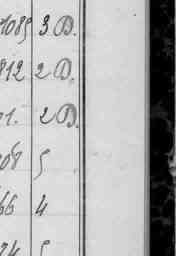 1085 3 D.
812 2 D.
21. 2 D.
08 5
66 4
74 5